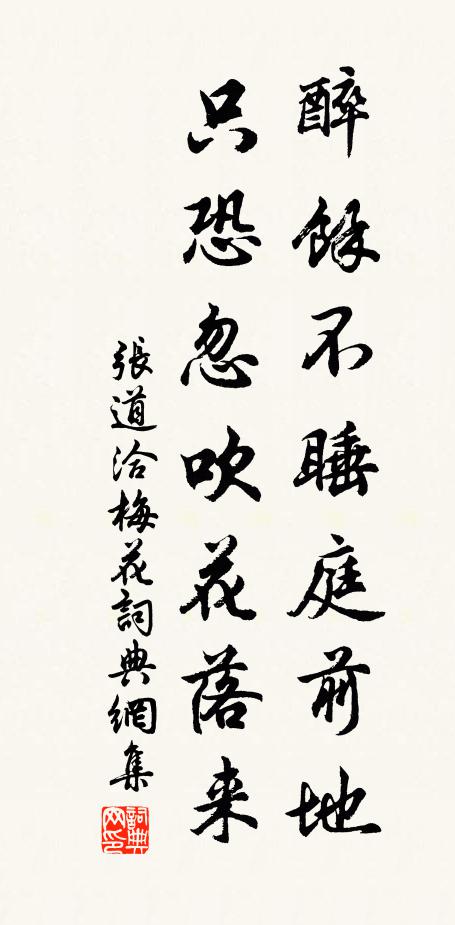 醉餘不睡庭前地
只恐忽吹花落来
張道洽梅花詞典網集
詞典網印